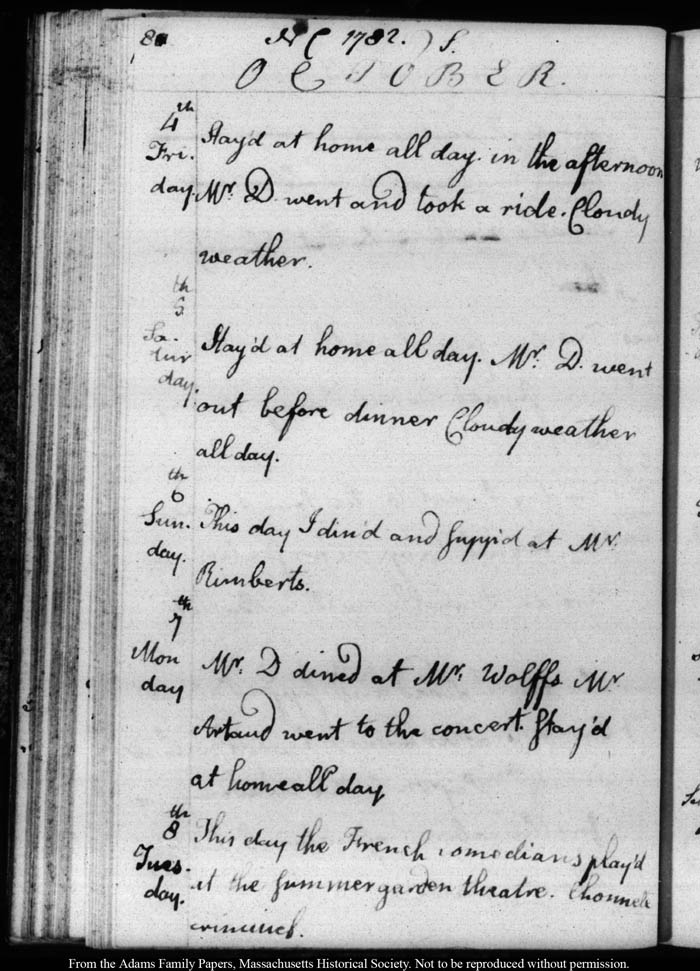 8
N ( 1782. ) S.
OCTOBER.
4th
Friday.
Stay'd at home all day. in the afternoon
Mr. D. went and took a ride. Cloudy
weather.
5th
Saturday.
Stay'd at home all day. Mr. D. went
out before dinner Cloudy weather
all day.
6th
Sunday.
This day I din'd and supp'd at Mr.
Rimberts.
7th
Monday
Mr. D dined at Mr. Wolffs Mr.
Artaud went to the concert. Stay'd
at home all day
8th
Tuesday.
This day the French comedians play'd
at the summer garden theatre. L'honnête
criminel.
From the Adams Family Papers, Massachusetts Historical Society. Not to be reproduced without permission.